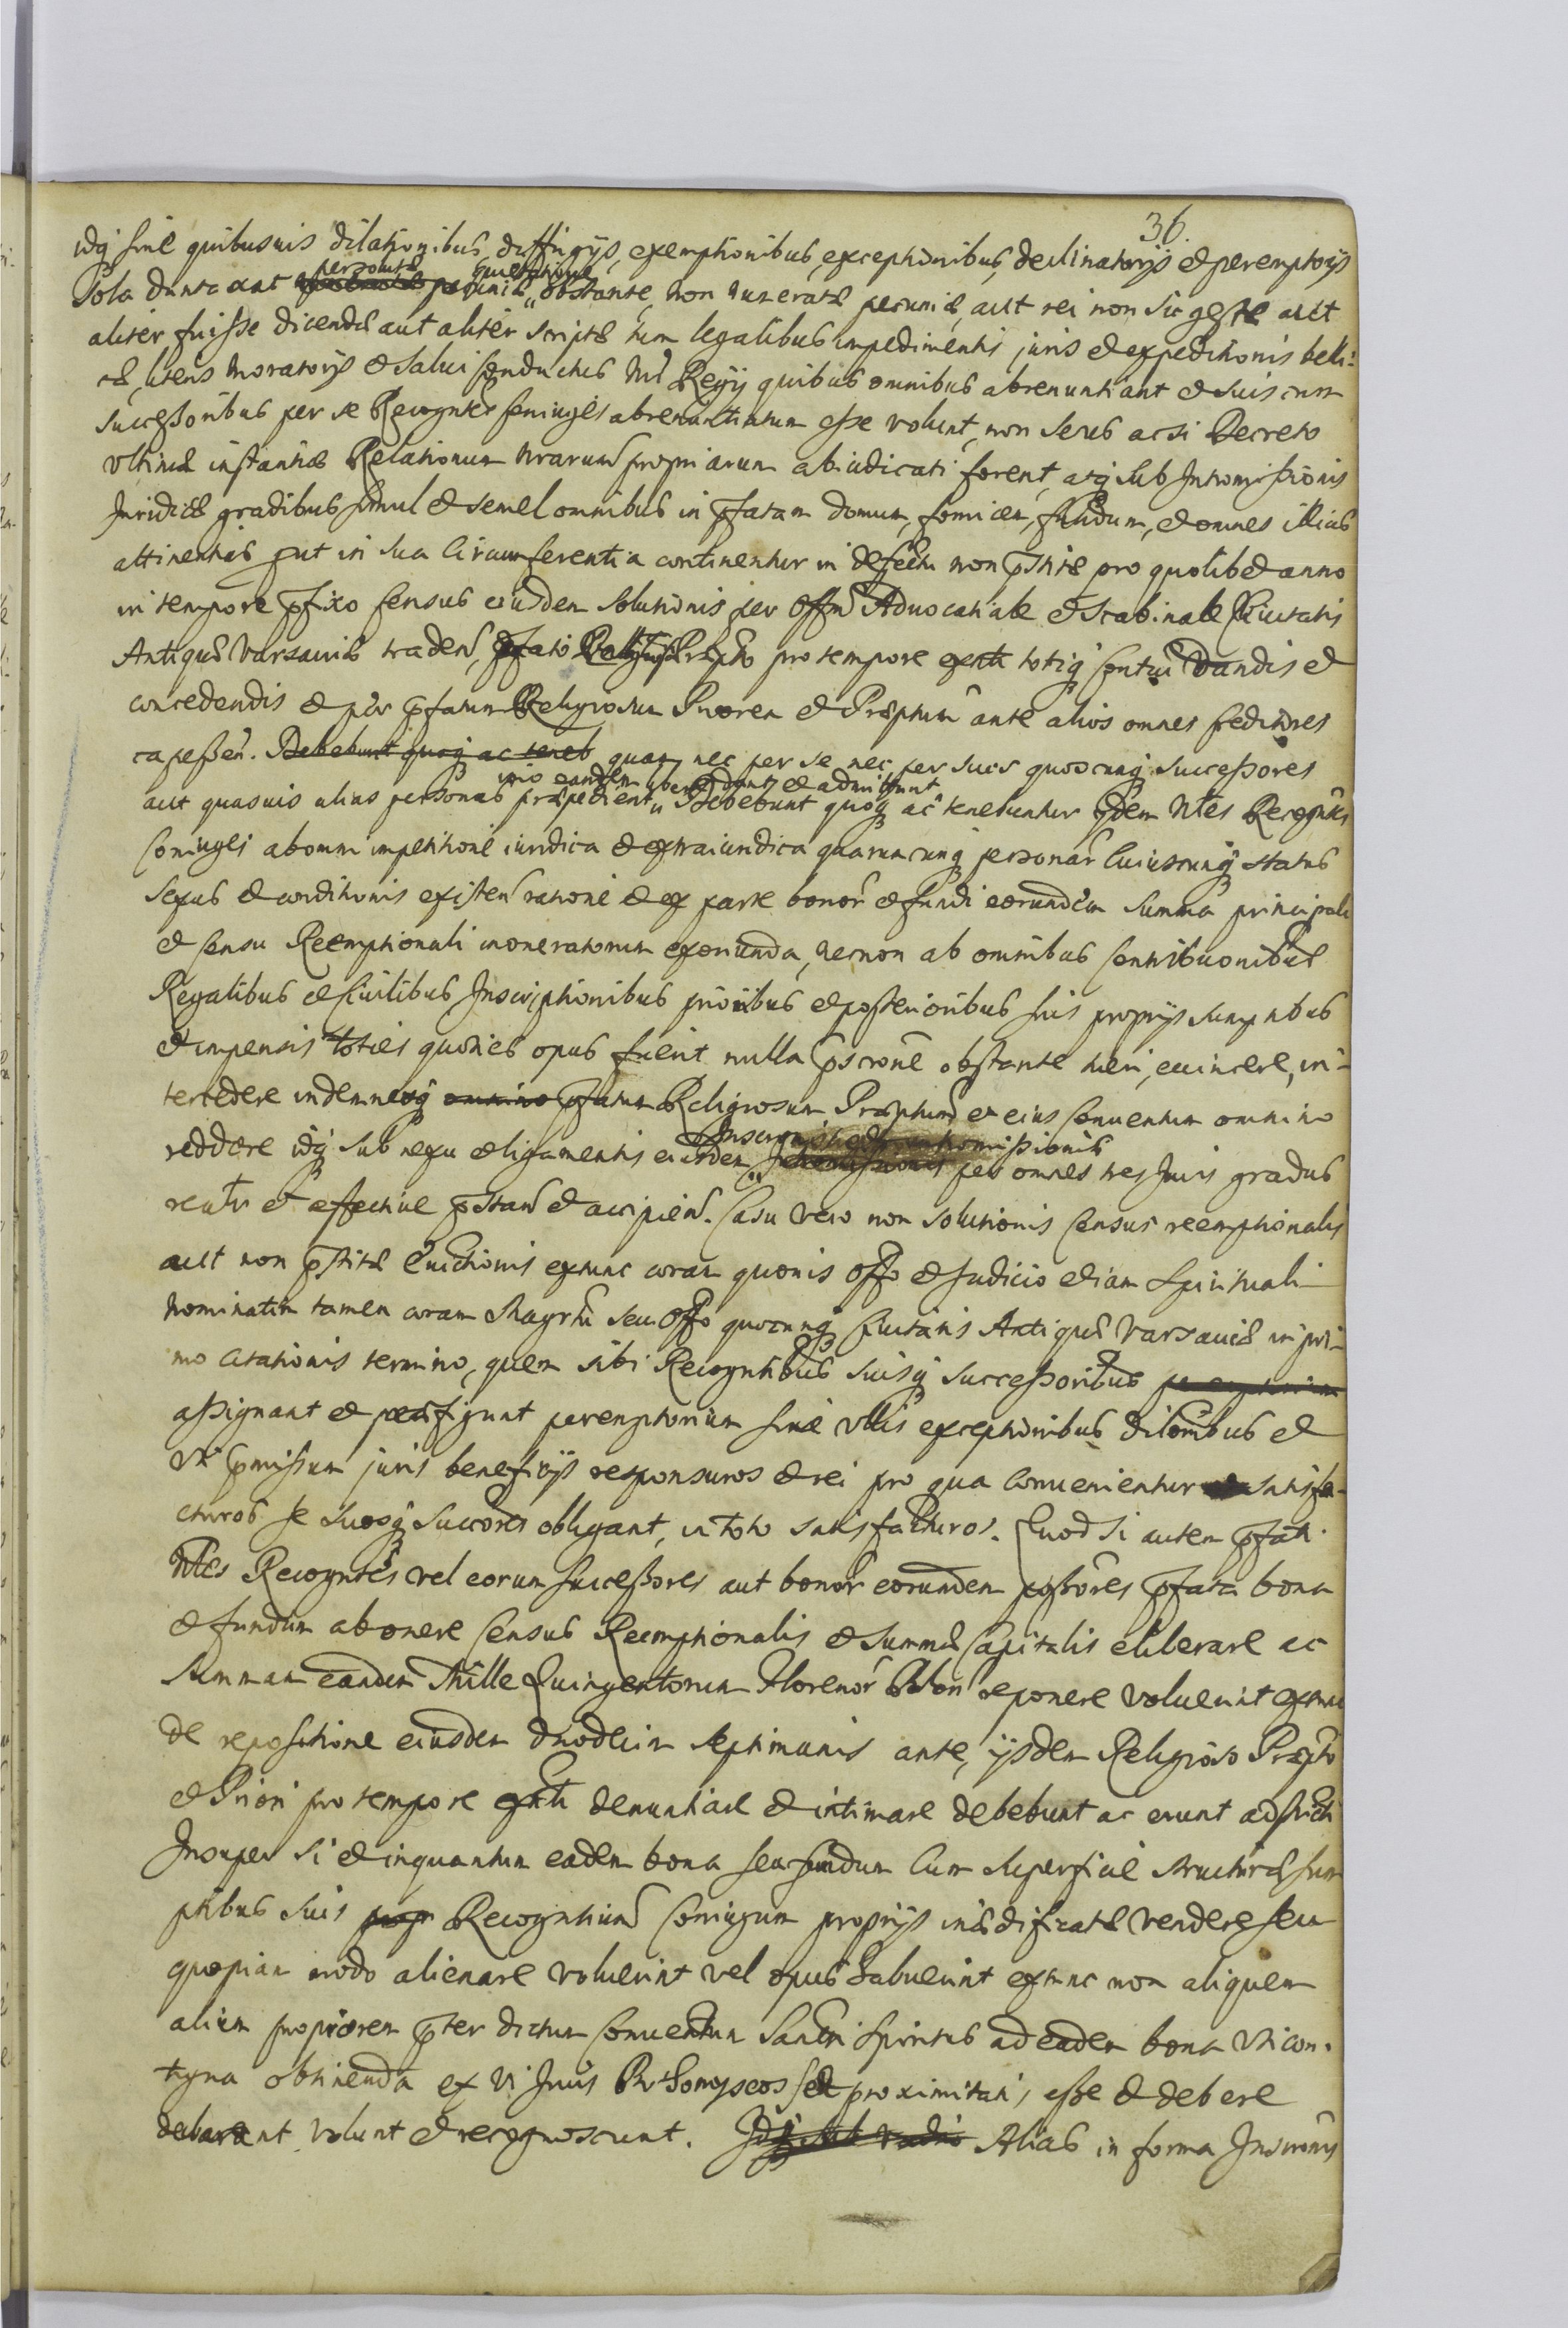 36.
idq sine quibusuis dilationibus, diffugijs, exemptionibus, exceptionibus, declinatorijs et peremptorijs
sola duntaxat personalis quietatione obstante, non numeratæ pecuniæ, aut rei non sic gestæ aut
aliter fuisse dicendæ aut aliter scriptæ tum legalibus impedimentis juris et expeditionis belli-
cæ, literis moratorijs et salui conductus Regij quibus omnibus abrenuntiant et suis cum
successoribus per se Recogntes Coniuges abrenuntiatum esse volunt, non secus acsi Decreto
vltimæ instantiæ Relationum nrarum propriarum abiudicati forent, atq sub Intromissionis
Juridicæ gradibus simul et semel omnibus in pfatam domum, fornicem, fundum, et omnes illius
attinentias put in sua Circumferentia continentur in defectu non pstitæ pro quolibet anno
in tempore pfixo Census eiusdem solutionis per Offm Aduocatiale et Scabinale Ciuitatis
Antiquæ Varsauiæ traden, pfato Religioso Præpto pro tempore exnti totiq Contui dandis et
concedendis et per pfatum Religiosum Priorem et Præptum ante alios omnes Creditores
capessen. Debebunt quoq ac teneb quam nec per se nec per suos quoscunq successores
imo eandem libere dant et admittunt
aut quasuis alias personas præpedient Debebunt quoq ac tenebuntur ijdem Ntes Recogntes
Coniuges ab omni impetitione iuridica et extraiuridica quarumcunq personar Cuiuscunq status
sexus et conditionis existen ratione et ex parte bonor et fundi eorundem summa principali
et Censu Reemptionali inoneratorum exoriunda, necnon ab omnibus Contribuonibus
Regalibus et Ciuilibus Inscriptionibus prioribus et posterioribus suis proprijs sumptibus
et impensis toties quoties opus fuerit nulla pscrone obstante tueri, euincere, in-
tercedere indemnesq omnino pfatum Religiosum Præptum et eius Conuentum omnino
Inscronis
reddere idq sub nexu et ligamentis eiusdem intromissionis per omnes tres Juris gradus
realr et effectiue pstan et accipien. Casu vero non solutionis Census reemptionalis
aut non pstitæ Euictionis extunc coram quouis Offo et Judicio etiam Spirituali
nominatim tamen coram Magrtu seu Offo quocunq Ciuitatis Antiquæ Varsauiæ in pri-
mo Citationis termino, quem sibi Recogntibus suisq successoribus peremptorium
assignant et præfigunt peremptorium sine vllis exceptionibus dilonibus et
vt pmissum juris beneficijs responsuros et rei pro qua Conuenientur satisfa-
cturos se suosq Succores obligant, in toto satisfacturos. Quod si autem pfati
Ntes Recogntes vel eorum successores aut bonor eorundem possores pfata bona
et fundum ab onere Census Reemptionalis et Summæ Capitalis eliberare ac
Summam eandem Mille Quingentorum Florenor Polon reponere voluerint extunc
de repositione eiusdem duodecim septimanis ante, ijsdem Religioso Præpto
et Priori pro tempore exnti denuntiare et intimare debebunt ac erunt adstricti
Insuper si et inquantum eadem bona seu fundum Cum superficie structuræ sum
ptibus suis propr Recogntium Coniugum proprijs inædificatæ vendere seu
quopiam modo alienare voluerint vel opus habuerint extunc non aliquem
alium propiorem pter dictum Conuentum Sancti Spiritus ad eadem bona vti con-
tigna obtinenda ex vi Juris seu proximitatis esse et debere
declarant volunt et recognoscunt. Idq sub vadio Alias in forma Inscronis